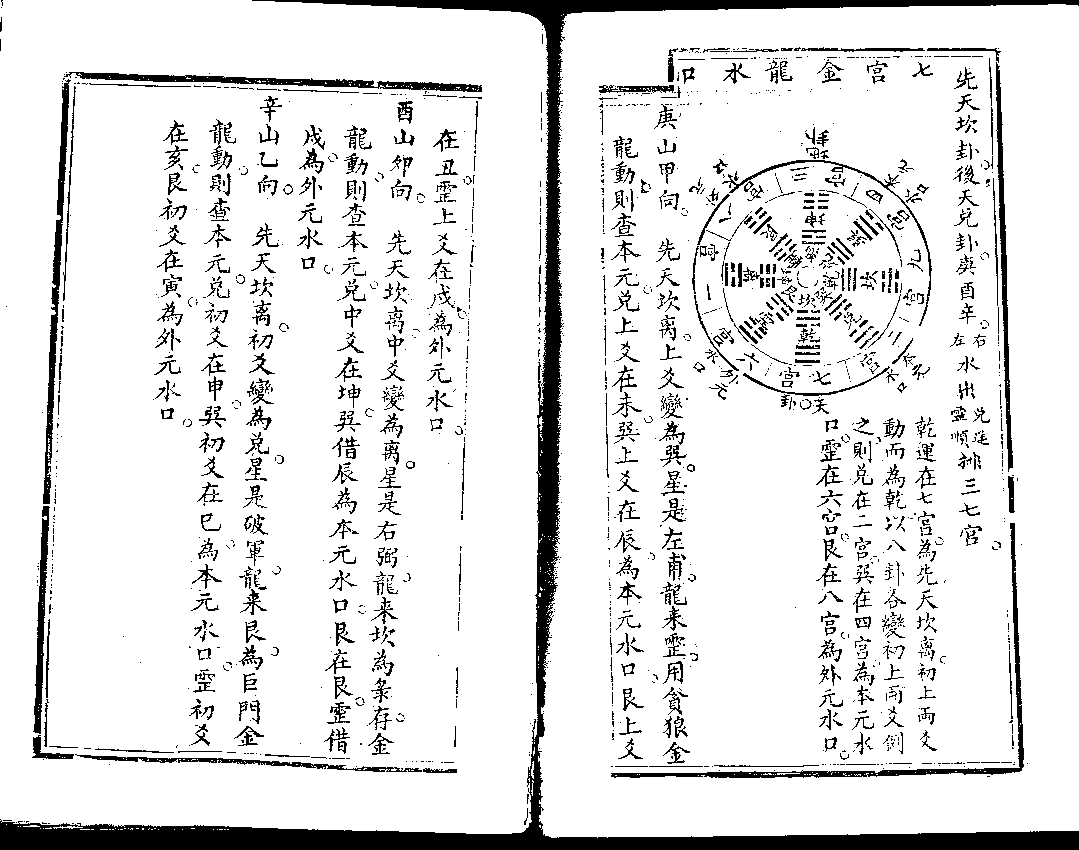 七宮金龍水口
先天坎卦後天兌卦庚酉辛右左水出兌進霊順排三七宮
乾運在七宮為先天坎离初上兩爻
動而為乾以八卦各變初上兩爻倒
之則兌在二宮巽在四宮為本元水
口霊在六宮艮在八宮為外元水口
地卦
三宮
四宮
九宮
二宮
七宮
六宮
一宮
八宮
外元水口
天卦
庚山甲向 先天坎离上爻變為巽星是左甫龍来霊用貪狼金
龍動則查本元兌上爻在未巽上爻在辰為本元水口艮上爻
在丑霊上爻在戌為外元水口
酉山卯向 先天坎离中爻變為离星是右弼龍来坎為彔存金
龍動則查本元兌中爻在坤巽借辰為本元水口艮在艮霊借
戌為外元水口
辛山乙向 先天坎离初爻變為兌星是破軍龍来艮為巨門金
龍動則查本元兌初爻在申巽初爻在巳為本元水口霊初爻
在亥艮初爻在寅為外元水口